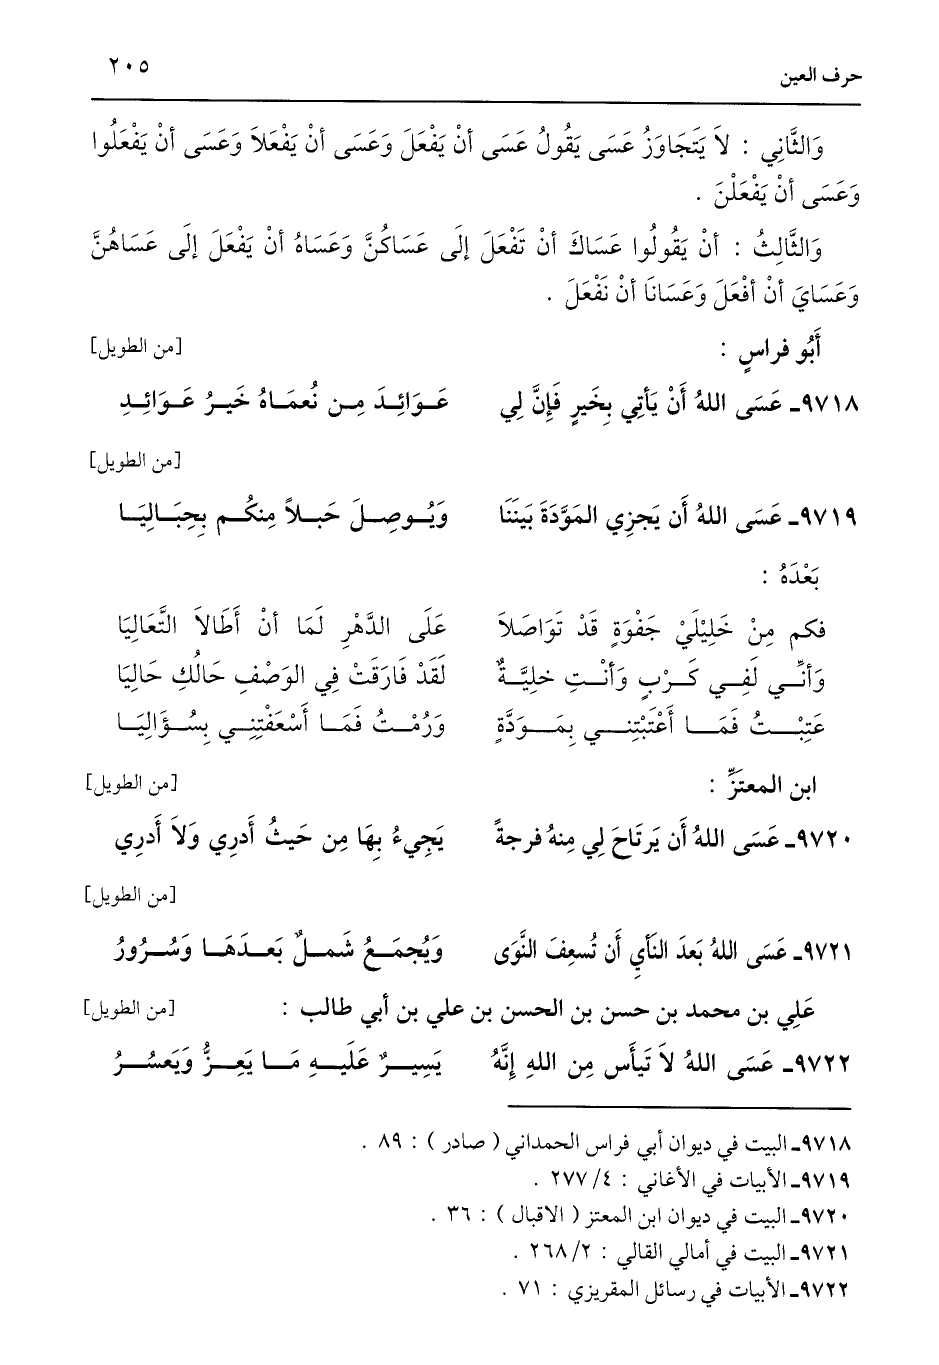 حرف العين ٢٠٥
وَالثَّانِي : لاَ يَتَجَاوَزُ عَسَى يَقُولُ عَسَى أنْ يَفْعَلَ وَعَسَى أنْ يَفْعَلاَ وَعَسَى أنْ يَفْعَلُوا
وَعَسَى أنْ يَفْعَلْنَ .
وَالثَّالِثُ : أنْ يَقُولُوا عَسَاكَ أنْ تَفْعَلَ إلَى عَسَاكُنَّ وَعَسَاهُ أنْ يَفْعَلَ إلَى عَسَاهُنَّ
وَعَسَايَ أنْ أفْعَلَ وَعَسَانَا أنْ نَفْعَلَ .
أَبُو فراسٍ : [من الطويل]
٩٧١٨ـ عَسَى اللهُ أَنْ يَأتِي بِخَيرٍ فَإِنَّ لِي عَـوَائِـدَ مِـن نُعمَـاهُ خَيـرُ عَـوَائِـدِ
[من الطويل]
٩٧١٩ـ عَسَى اللهُ أَن يَجزِي المَوَّدَةَ بَيَننَا وَيُـوصِـلَ حَبـلاً مِنكُـم بِحِبَـالِيَـا
بَعْدَهُ :
فكم مِنْ خَلِيْلَيْ جَفْوَةٍ قَدْ تَوَاصَلاَ عَلَى الدَّهْرِ لَمَا أنْ أَطَالاَ التَّعَالِيَا
وَأنِّـي لَفِـي كَـرْبٍ وَأنْـتِ خلِيَّـةٌ لَقَدْ فَارَقَتْ فِي الوَصْفِ حَالُكِ حَالِيَا
عَتِبْـتُ فَمَـا أَعْتَبْتِنِـي بِمَـوَدَّةٍ وَرُمْـتُ فَمَـا أَسْعَفْتِنِـي بِسُـؤَالِيَـا
ابن المعتَزِّ : [من الطويل]
٩٧٢٠ـ عَسَى اللهُ أَن يَرتَاحَ لِي مِنهُ فرجةً يَجِيءُ بِهَا مِن حَيثُ أَدرِي وَلاَ أَدرِي
[من الطويل]
٩٧٢١ـ عَسَى اللهُ بَعدَ النَأيِ أَن تُسعِفَ النَّوَى وَيُجمَـعُ شَمـلٌ بَعـدَهَـا وَسُـرُورُ
عَلِي بن محمد بن حسن بن الحسن بن علي بن أبي طالب : [من الطويل]
٩٧٢٢ـ عَسَى اللهُ لاَ تَيأَس مِن اللهِ إِنَّهُ يَسِيـرٌ عَلَيـهِ مَـا يَعِـزُّ وَيَعسُـرُ
٩٧١٨ـ البيت في ديوان أبي فراس الحمداني ( صادر ) : ٨٩ .
٩٧١٩ـ الأبيات في الأغاني : ٤/ ٢٧٧ .
٩٧٢٠ـ البيت في ديوان ابن المعتز ( الاقبال ) : ٣٦ .
٩٧٢١ـ البيت في أمالي القالي : ٢/ ٢٦٨ .
٩٧٢٢ـ الأبيات في رسائل المقريزي : ٧١ .